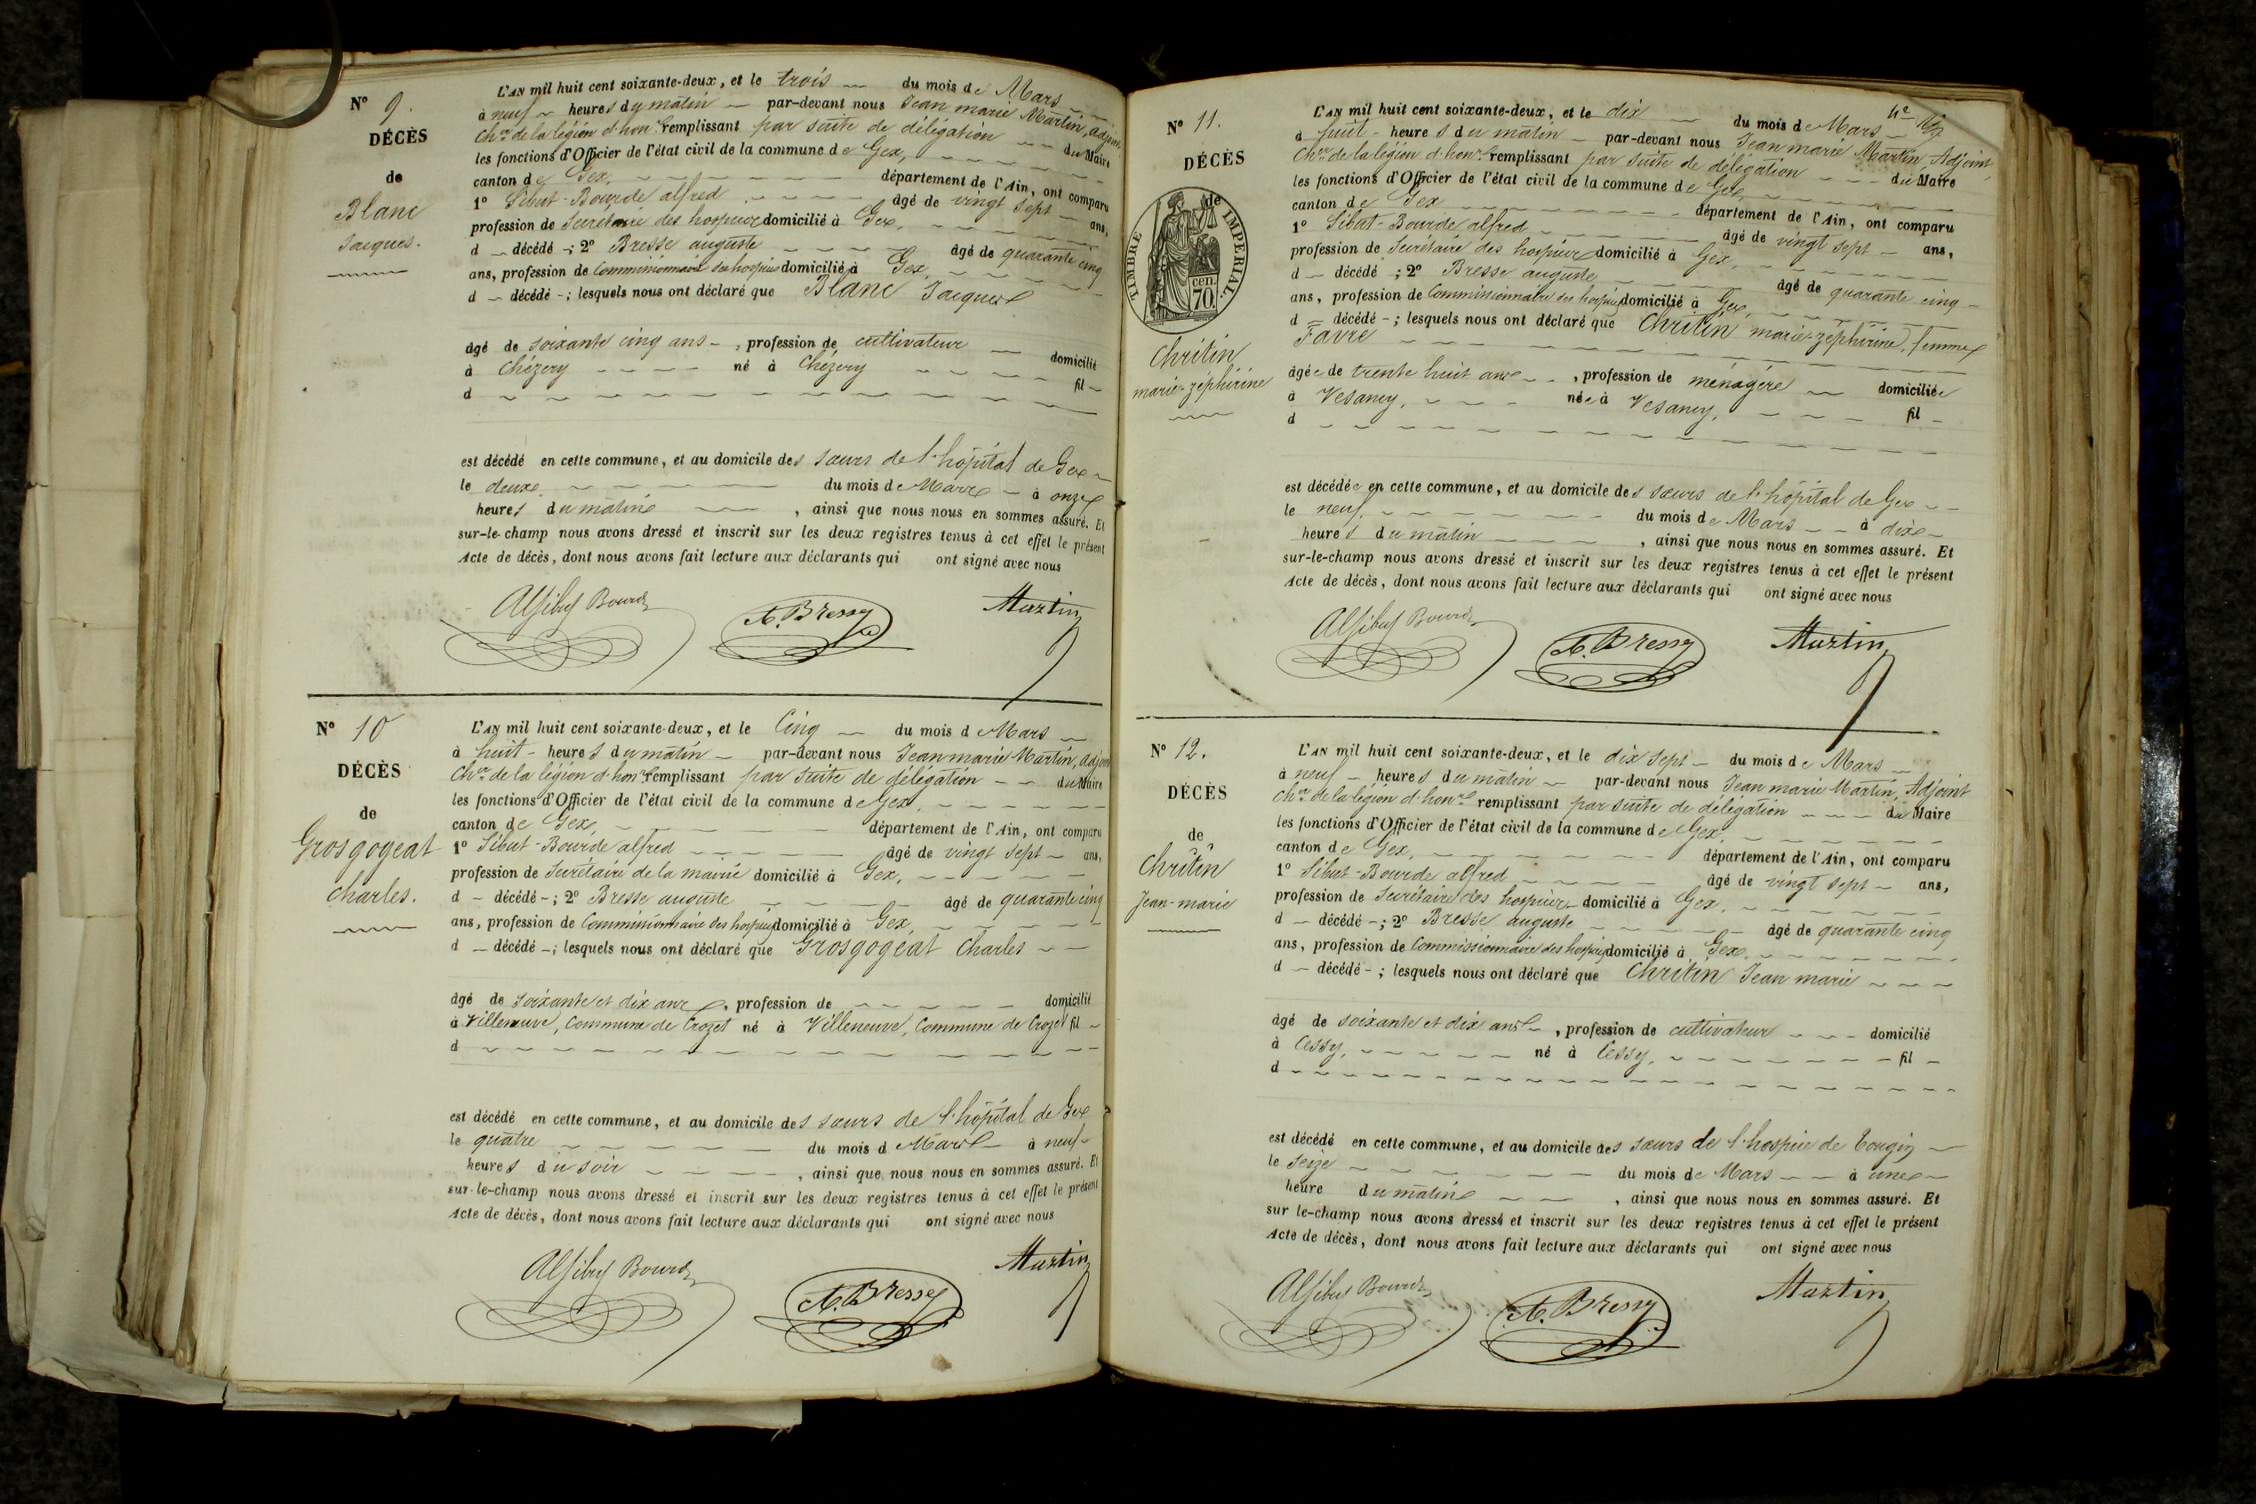 N° 9.
DÉCÈS
de
Blanc
Jacques.
L'AN mil huit cent soixante-deux, et le trois du mois de Mars
à neuf heures du matin par-devant nous Jean marie Martin, adjoint
Chev de la légion d'honr remplissant par suite de délégation du Maire
les fonctions d'Officier de l'état civil de la commune de Gex,
canton de Gex, département de l'Ain, ont comparu
1° Sibut-Bourde alfred âgé de vingt sept ans,
profession de Secrétaire des hospices domicilié à Gex,
d décédé ; 2° Bresse auguste âgé de quarante cinq
ans, profession de Commissionnaire des hospices domicilié à Gex,
d décédé ; lesquels nous ont déclaré que Blanc Jacques
âgé de soixante cinq ans , profession de cultivateur domicilié
à Chézery né à Chézery fil
d
est décédé en cette commune, et au domicile des sœurs de l'hôpital de Gex
le deux du mois de Mars à onze
heures du matin , ainsi que nous nous en sommes assuré. Et
sur-le-champ nous avons dressé et inscrit sur les deux registres tenus à cet effet le présent
Acte de décès, dont nous avons fait lecture aux déclarants qui ont signé avec nous
A Sibut Bourde A. Bresse Martin
N° 10
DÉCÈS
de
Grosgogeat
Charles.
L'AN mil huit cent soixante-deux, et le Cinq du mois de Mars
à huit heures du matin par-devant nous Jean marie Martin, adjoint
Chev de la légion d'honr remplissant par suite de délégation du Maire
les fonctions d'Officier de l'état civil de la commune de Gex,
canton de Gex, département de l'Ain, ont comparu
1° Sibut-Bourde alfred âgé de vingt sept ans,
profession de Secrétaire de la mairie domicilié à Gex,
d décédé ; 2° Bresse auguste âgé de quarante cinq
ans, profession de Commissionnaire des hospices domicilié à Gex,
d décédé ; lesquels nous ont déclaré que Grosgogeat Charles
âgé de soixante et dix ans , profession de domicilié
à Villeneuve, Commune de Crozet né à Villeneuve, Commune de Crozet fil
d
est décédé en cette commune, et au domicile des sœurs de l'hôpital de Gex
le quatre du mois de Mars à neuf
heures du soir , ainsi que nous nous en sommes assuré. Et
sur-le-champ nous avons dressé et inscrit sur les deux registres tenus à cet effet le présent
Acte de décès, dont nous avons fait lecture aux déclarants qui ont signé avec nous
A Sibut Bourde A. Bresse Martin
N° 11.
DÉCÈS
de
TIMBRE IMPÉRIAL.
70 cen.
Chritin
marie-zéphirine
L'AN mil huit cent soixante-deux, et le dix du mois de Mars
à huit heures du matin par-devant nous Jean marie Martin, Adjoint,
Chev de la légion d'honr remplissant par suite de délégation du Maire
les fonctions d'Officier de l'état civil de la commune de Gex,
canton de Gex département de l'Ain, ont comparu
1° Sibut-Bourde alfred âgé de vingt sept ans,
profession de Secrétaire des hospices domicilié à Gex,
d décédé ; 2° Bresse auguste âgé de quarante cinq
ans, profession de Commissionnaire des hospices domicilié à Gex,
d décédé ; lesquels nous ont déclaré que Chritin marie-zéphirine, femme
Favre
âgée de trente huit ans , profession de ménagère domiciliée
à Vesancy, née à Vesancy, fil
d
est décédée en cette commune, et au domicile des sœurs de l'hôpital de Gex
le neuf du mois de Mars à dix
heures du matin , ainsi que nous nous en sommes assuré. Et
sur-le-champ nous avons dressé et inscrit sur les deux registres tenus à cet effet le présent
Acte de décès, dont nous avons fait lecture aux déclarants qui ont signé avec nous
A Sibut Bourde A. Bresse Martin
N° 12.
DÉCÈS
de
Chritin
Jean-marie
L'AN mil huit cent soixante-deux, et le dix sept du mois de Mars
à neuf heures du matin par-devant nous Jean marie Martin, Adjoint
Chev de la légion d'honr remplissant par suite de délégation du Maire
les fonctions d'Officier de l'état civil de la commune de Gex,
canton de Gex, département de l'Ain, ont comparu
1° Sibut-Bourde alfred âgé de vingt sept ans,
profession de Secrétaire des hospices domicilié à Gex,
d décédé ; 2° Bresse auguste âgé de quarante cinq
ans, profession de Commissionnaire des hospices domicilié à Gex,
d décédé ; lesquels nous ont déclaré que Chritin Jean marie
âgé de soixante et dix ans , profession de cultivateur domicilié
à Cessy, né à Cessy, fil
d
est décédé en cette commune, et au domicile des sœurs de l'hospice de Tougin
le seize du mois de Mars à une
heure du matin , ainsi que nous nous en sommes assuré. Et
sur le-champ nous avons dressé et inscrit sur les deux registres tenus à cet effet le présent
Acte de décès, dont nous avons fait lecture aux déclarants qui ont signé avec nous
A Sibut Bourde A. Bresse Martin